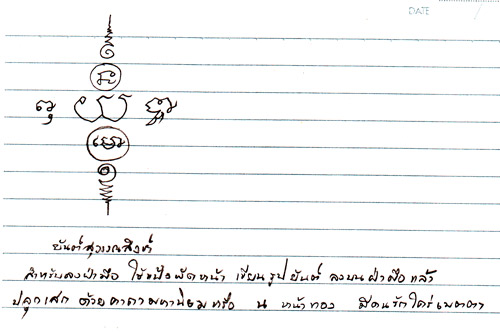 DATE
ยันต์สุวรรณสิงห์
สำหรับลงฝ่ามือ ใช้แป้งผัดหน้า เขียนรูปยันต์ ลงบนฝ่ามือแล้ว
ปลุกเสก ด้วยคาถามหานิยมหรือ น หน้าทอง มีคนรักใคร่เมตตา